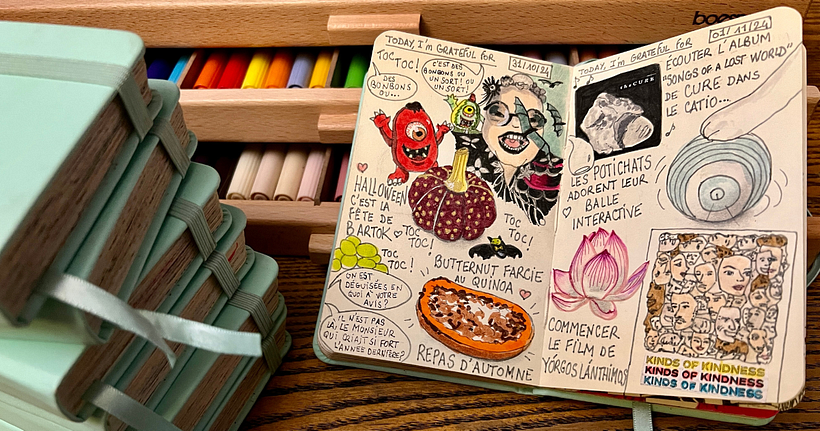 TODAY, I'm GRATEFUL FOR
31/10/24
TOC TOC!
DES
BONBONS
OU...
C'EST DES
BONBONS OU
UN SORT! OU
UN SORT!
HALLOWEEN
C'EST LA
FÊTE DE
BARTOK
TOC
TOC!
TOC
TOC!
TOC
TOC!
ON EST
DÉGUISÉES EN
QUOI À VOTRE
AVIS?
IL N'EST PAS
LÀ, LE MONSIEUR
QUI CRIAIT SI FORT
L'ANNÉE DERNIÈRE?
BUTTERNUT FARCIE
AU QUINOA
REPAS D'AUTOMNE
TODAY, I'm GRATEFUL FOR
01/11/24
ÉCOUTER L'ALBUM
"SONGS OF A LOST WORLD"
DE CURE DANS
LE CATIO...
THE CURE
LES POTICHATS
ADORENT LEUR
BALLE
INTERACTIVE
COMMENCER
LE FILM DE
YÓRGOS LÁNTHIMOS
KINDS OF KINDNESS
KINDS OF KINDNESS
KINDS OF KINDNESS